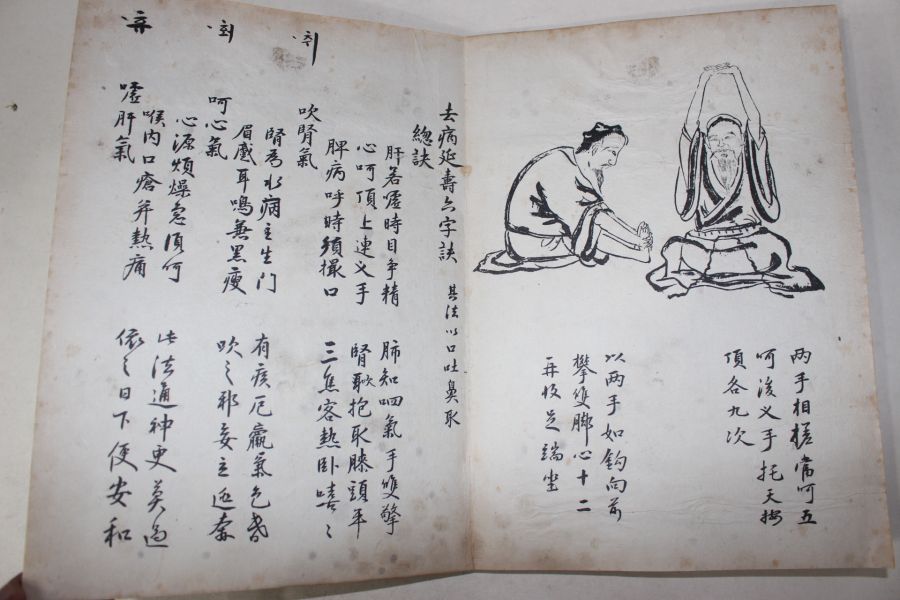 两手相搓當呵五
呵後义手托天按
頂各九次
以两手如鈎向前
攀雙脚心十二
再收足端坐
去病延壽六字訣 其法以口吐鼻取
總訣
肝若噓時目争精 肺知呬氣手雙擎
心呵頂上連义手 腎吹抱取膝頭平
脾病呼時須撮口 三焦客熱卧嘻〻
吹腎氣
腎為水病主生门 有疾厄羸氣色昏
眉蹙耳鳴兼黑瘦 吹之邪妄立逃奔
呵心氣
心源煩燥急須呵 此法通神更莫過
喉内口瘡并熱痛 依之日下便安和
噓肝氣